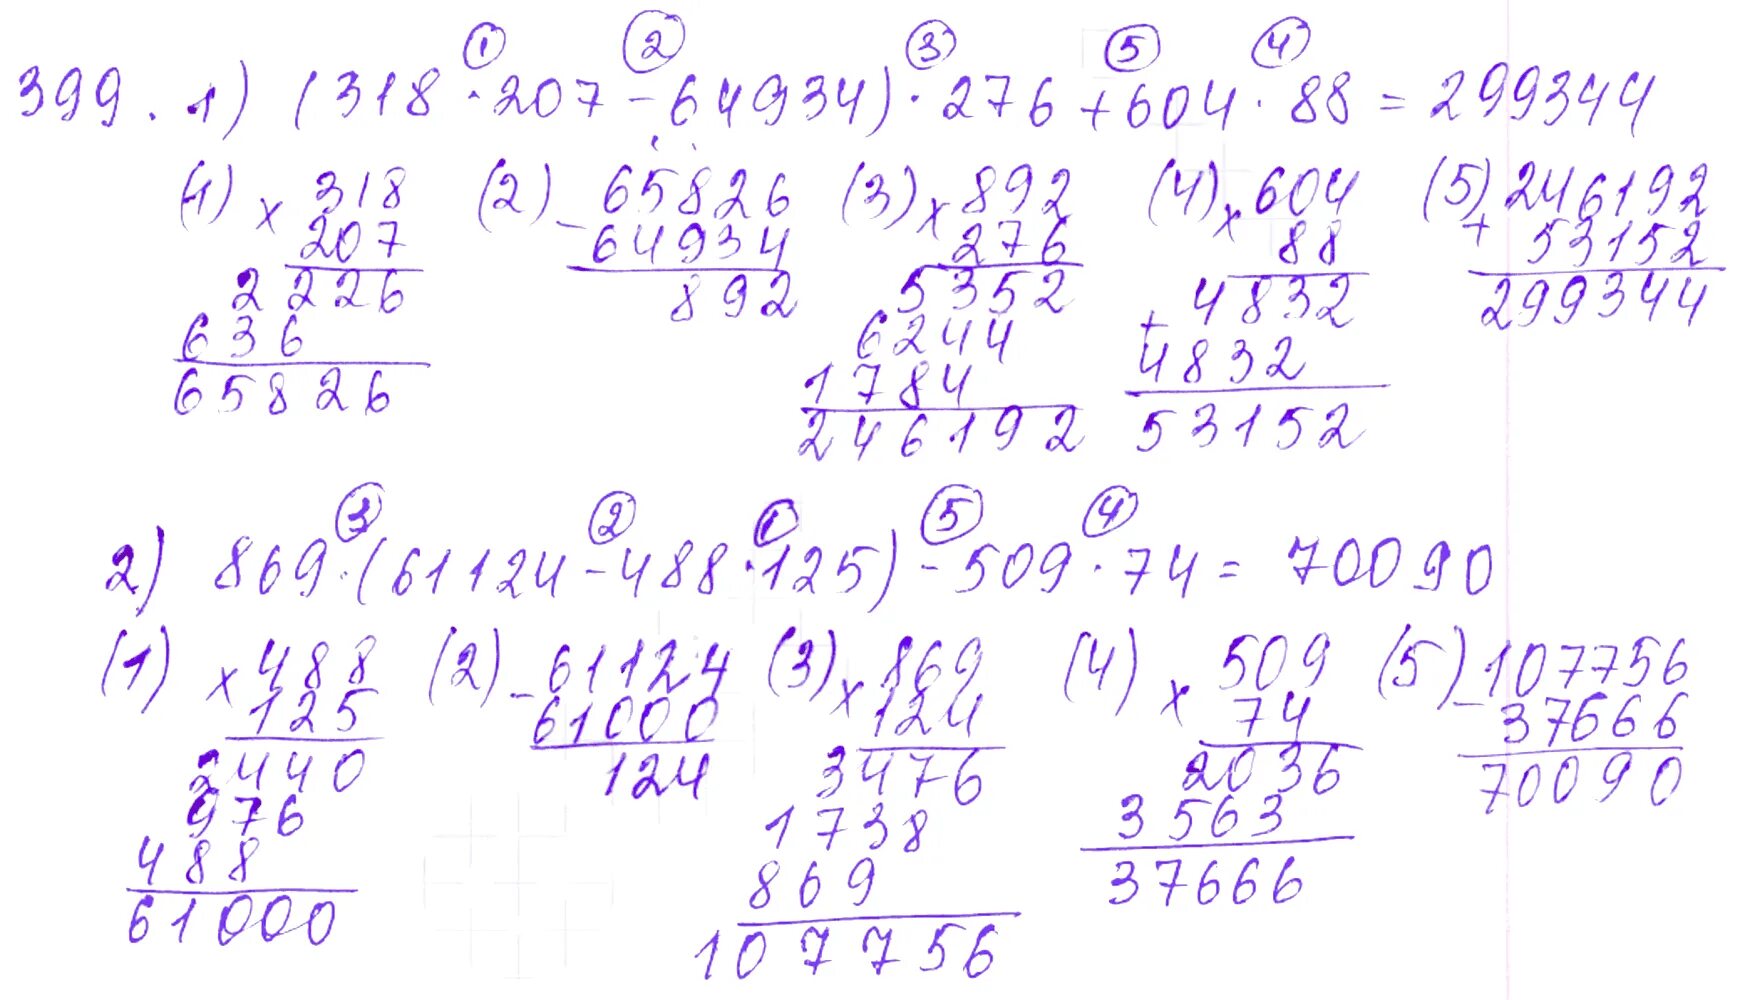 ① ② ③ ⑤ ④
399. 1) (318 · 207 - 64934) · 276 + 604 · 88 = 299344
(1) × 318 (2) - 65826 (3) × 892 (4) × 604 (5) + 246192
207 64934 276 88 53152
2226 892 5352 4832 299344
636 6244 + 4832
65826 1784 53152
246192
③ ② ① ⑤ ④
2) 869 · (61124 - 488 · 125) - 509 · 74 = 70090
(1) × 488 (2) - 61124 (3) × 869 (4) × 509 (5) - 107756
125 61000 124 74 37666
2440 124 3476 2036 70090
976 1738 3563
488 869 37666
61000 107756